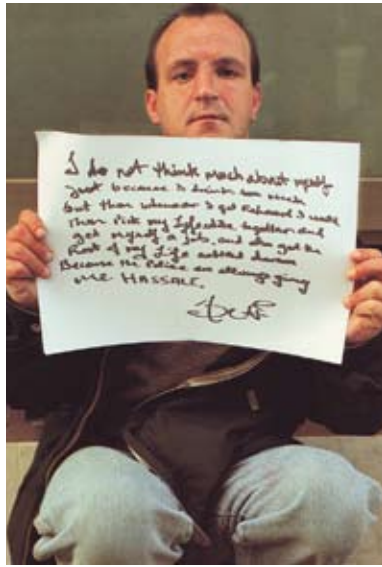 I do not think much about myself
just because I drink too much
but then whenever I get Rehoused I will
Then Pick my together and
get myself a job, and also get the
Rest of my Life sorted
Because the Police are always giving
me HASSALE.